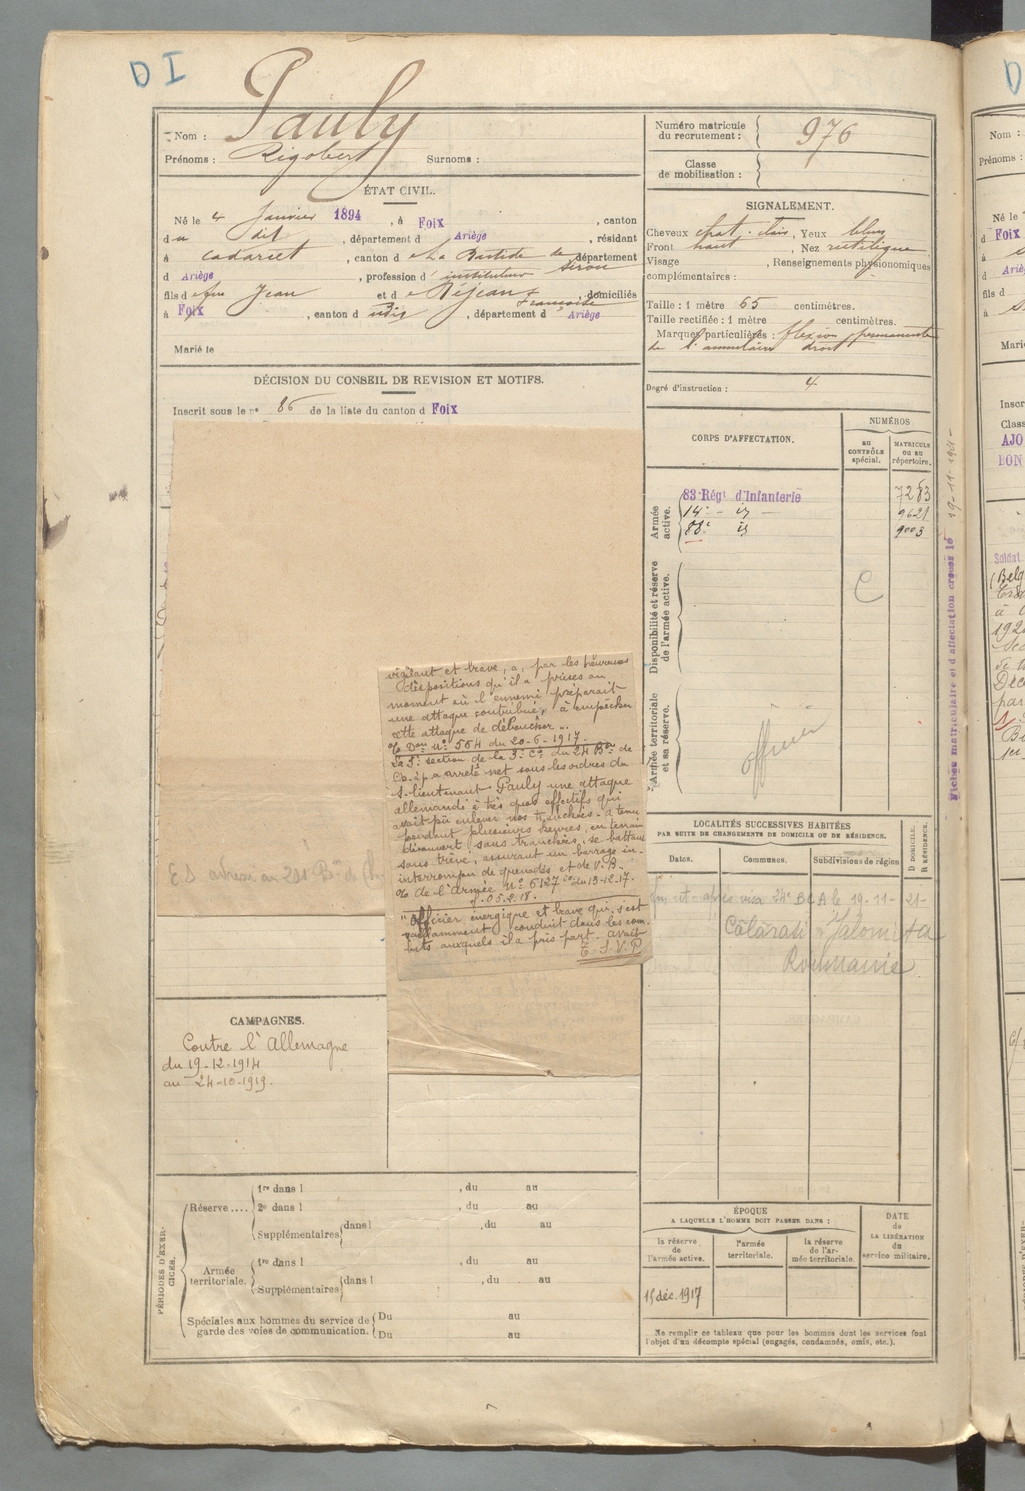 D I
Nom : Pauly
Prénoms : Rigobert Surnoms :
Numéro matricule du recrutement : 976
Classe de mobilisation :
ÉTAT CIVIL.
Né le 4 Janvier 1894, à Foix, canton
du dit, département d Ariège, résidant
à Cadarcet, canton d e La Bastide de Sérou département
d Ariège, profession d' instituteur
fils d e feu Jean et d e Réjean Françoise, domiciliés
à Foix, canton d udit, département d Ariège
Marié le
SIGNALEMENT.
Cheveux chat. clair, Yeux bleus
Front haut, Nez rectiligne
Visage , Renseignements physionomiques
complémentaires :
Taille : 1 mètre 65 centimètres.
Taille rectifiée : 1 mètre centimètres.
Marques particulières : flexion permanente
de l'annulaire droit
Degré d'instruction : 4
DÉCISION DU CONSEIL DE REVISION ET MOTIFS.
Inscrit sous le n° 86 de la liste du canton d Foix
vigilant et brave, a, par les heureuses
dispositions qu'il a prises au
moment où l'ennemi préparait
une attaque contribué, à empêcher
cette attaque de déboucher...
% Don n° 564 du 20-6-1917.
La 3e section de la 3e Cie du 24 Bon de
Ch. à p. a arrêté net sous les ordres du
S-lieutenant Pauly une attaque
allemande à très gros effectifs qui
avait pu enlever nos tranchées. A tenu
pendant plusieurs heures, en terrain
découvert sans tranchées, se battant
sans trêve, assurant un barrage in-
interrompu de grenades et de V.B.
% de l'armée N° 6127 du 13-12-17.
"Officier énergique et brave qui s'est
vaillamment conduit dans les com-
bats auxquels il a pris part. avait
T.S.V.P.
CORPS D'AFFECTATION.
NUMÉROS
AU CONTRÔLE spécial.
MATRICULE OU AU répertoire.
Armée active.
83 Régt d'Infanterie 7283
14e - id - 9621
88e id 9003
Disponibilité et réserve de l'armée active.
C
Armée territoriale et sa réserve.
officier
Fiches matriculaire et d'affectation créées le 19-11-1921-
LOCALITÉS SUCCESSIVES HABITÉES
PAR SUITE DE CHANGEMENTS DE DOMICILE OU DE RÉSIDENCE.
Dates. Communes. Subdivisions de région
D DOMICILE. R RÉSIDENCE.
après visa 24e BCA le 19-11-21-
Călărati - Jalomitza
Roumanie
CAMPAGNES.
Contre l'Allemagne
du 19-12-1914
au 24-10-1919.
PÉRIODES D'EXERCICES.
Réserve....
1re dans l , du au
2e dans l , du au
Supplémentaires dans l , du au
Armée territoriale.
1re dans l , du au
Supplémentaires dans l , du au
Spéciales aux hommes du service de garde des voies de communication.
Du au
Du au
ÉPOQUE
A LAQUELLE L'HOMME DOIT PASSER DANS :
la réserve de l'armée active.
l'armée territoriale.
la réserve de l'armée territoriale.
DATE de LA LIBÉRATION du service militaire.
15 déc. 1917
Ne remplir ce tableau que pour les hommes dont les services font
l'objet d'un décompte spécial (engagés, condamnés, omis, etc.).